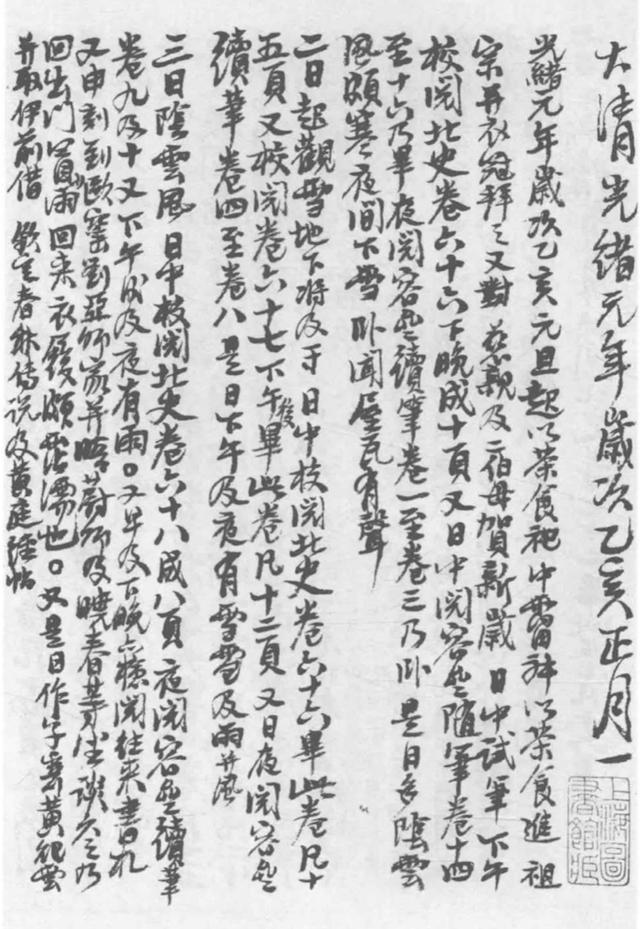 大清光緒元年歲次乙亥正月一
光緒元年歲次乙亥元旦起以茶食祀中霤神以茶食進 祖
宗并衣冠拜之又對 慈親及二伯母賀新歲 日中試筆 下午
校閱北史卷六十六下晚成十頁又日中閱容齋隨筆卷十四
至十六乃畢夜閱容齋續筆卷一至卷三乃卧 是日多陰雲
風頗寒夜間下雪 卧聞屋瓦有聲
二日起觀雪地下將及寸 日中校閱北史卷六十六畢此卷凡十
五頁又校閱卷六十七下午後畢此卷凡十二頁 又日夜閱容齋
續筆卷四至卷八 是日下午及夜有雪雪及雨并風
三日陰雲風 日中校閱北史卷六十八成八頁 夜閱容齋續筆
卷九及十 又下午 及夜有雨。又早及下晚 檢閱往來書札
又申刻到 劉亞師家并晤 師及曉春等坐談久之乃
回出門 雨回來衣履頗霑濡也。又是日作字 黃
并取伊前借 欽定春秋傳說及黃庭經帖
上海圖書館藏